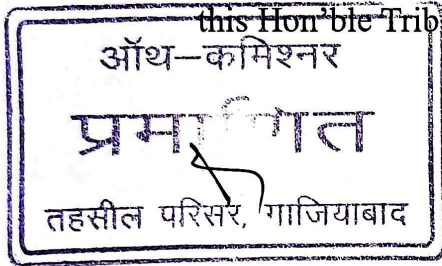 this Hon'ble Trib
ऑथ–कमिश्नर
प्रमाणित
तहसील परिसर, गाजियाबाद